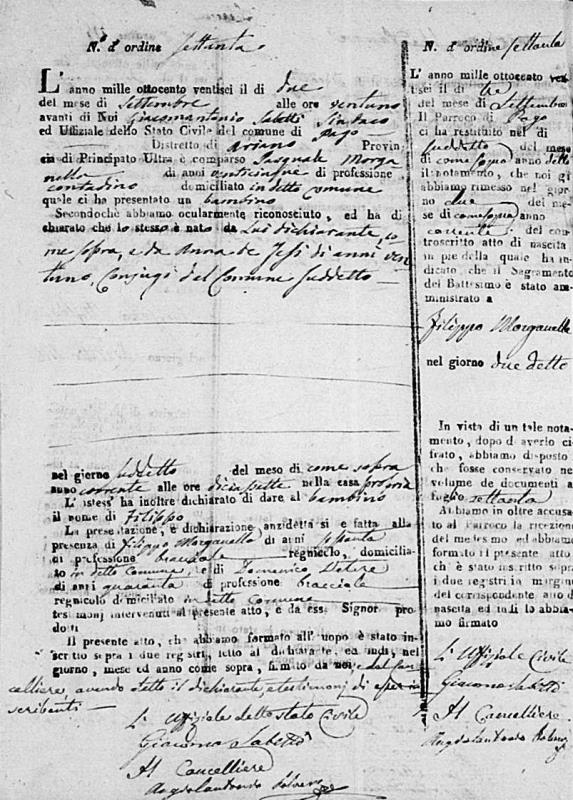 N.º d'ordine settanta
L'anno mille ottocento ventisei il di due
del mese di Settembre alle ore ventuno
avanti di Noi Giacomantonio Sabetti Sindaco
ed Uffiziale dello Stato Civile del comune di Pago
Distretto di Ariano Provin
cia di Principato Ultra è comparso Pasquale Morga
nella di anni venticinque di professione
contadino domiciliato in detto Comune
quale ci ha presentato un bambino
Secondochè abbiamo ocularmente riconosciuto, ed ha di
chiarato che lo stesso è nato da Lui dichiarante, co
me sopra, e da Anna de Jesi di anni ven
tuno, Conjugi del Comune suddetto
nel giorno suddetto del mese di come sopra
anno corrente alle ore diciasette nella casa propria
L'istess' ha inoltre dichiarato di dare al bambino
il nome di Filippo
La presentazione, e dichiarazione anzidetta si e fatta alla
presenza di Filippo Morganella di anni sessanta
di professione bracciale regnicolo, domicilia
to in detto Comune, e di Domenico
di anni quaranta di professione bracciale
regnicolo domiciliato in detto Comune
testimonj intervenuti al presente atto, e da ess: Signor pro
dotti
Il presente atto, che abbiamo formato all'uopo è stato in
scritto sopra i due registri, letto al dichiarante, ed indi, nel
giorno, mese ed anno come sopra, firmato da noi, e dal Can
celliere, avendo detto il dichiarante, e testimonj di esser in
scribenti
L'Uffiziale dello stato Civile
Giacomo Sabetti
Il Cancelliere
N. d'ordine settanta
L'anno mille ottocento ven
tisei il di tre
del mese di Settembre
Il Parroco di Pago
ci ha restituito nel di
suddetto del mese
di come sopra anno detto
il notamento, che noi gli
abbiamo rimesso nel gior
no due del me-
se di come sopra anno
corrente del con
troscritto atto di nascita
in piè della quale ha in
dicato che il Sagramento
del Battesimo è stato am
ministrato a
Filippo Morganella
nel giorno due detto
In vista di un tale nota
mento, dopo d'averlo ci
frato, abbiamo disposto
che fosse conservato nel
volume de documenti a
foglio settanta
Abbiamo in oltre accusa
to al Parroco la ricezione
del medesimo ed abbiamo
formato il presente atto
ch'è stato inscritto sopra
i due registri in margine
del corrispondente atto di
nascita ed indi lo abbia-
mo firmato
L'Uffiziale Civile
Giacomo Sabetti
Il Cancelliere